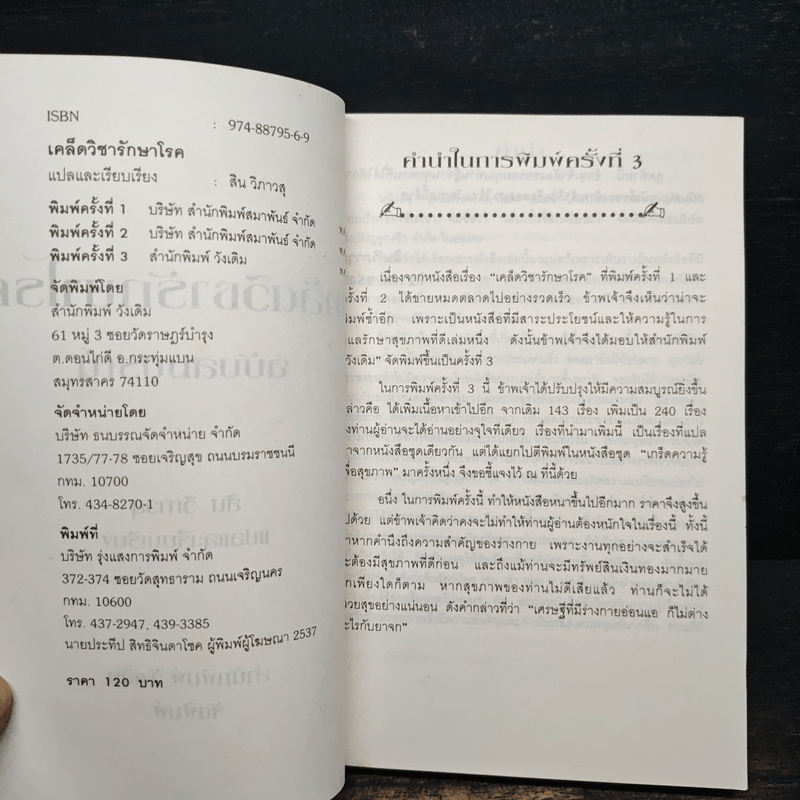 ISBN : 974-88795-6-9
เคล็ดวิชารักษาโรค
แปลและเรียบเรียง : สิน วิภาวสุ
พิมพ์ครั้งที่ 1 บริษัท สำนักพิมพ์สมาพันธ์ จำกัด
พิมพ์ครั้งที่ 2 บริษัท สำนักพิมพ์สมาพันธ์ จำกัด
พิมพ์ครั้งที่ 3 สำนักพิมพ์ วังเดิม
จัดพิมพ์โดย
สำนักพิมพ์ วังเดิม
61 หมู่ 3 ซอยวัดราษฎร์บำรุง
ต.ดอนไก่ดี อ.กระทุ่มแบน
สมุทรสาคร 74110
จัดจำหน่ายโดย
บริษัท ธนบรรณจัดจำหน่าย จำกัด
1735/77-78 ซอยเจริญสุข ถนนบรมราชชนนี
กทม. 10700
โทร. 434-8270-1
พิมพ์ที่
บริษัท รุ่งแสงการพิมพ์ จำกัด
372-374 ซอยวัดสุทธาราม ถนนเจริญนคร
กทม. 10600
โทร. 437-2947, 439-3385
นายประทีป สิทธิจินดาโชค ผู้พิมพ์ผู้โฆษณา 2537
ราคา 120 บาท
คำนำในการพิมพ์ครั้งที่ 3
เนื่องจากหนังสือเรื่อง "เคล็ดวิชารักษาโรค" ที่พิมพ์ครั้งที่ 1 และ
ครั้งที่ 2 ได้ขายหมดตลาดไปอย่างรวดเร็ว ข้าพเจ้าจึงเห็นว่าน่าจะ
พิมพ์ซ้ำอีก เพราะเป็นหนังสือที่มีสาระประโยชน์และให้ความรู้ในการ
แลรักษาสุขภาพที่ดีเล่มหนึ่ง ดังนั้นข้าพเจ้าจึงได้มอบให้สำนักพิมพ์
วังเดิม" จัดพิมพ์ขึ้นเป็นครั้งที่ 3
ในการพิมพ์ครั้งที่ 3 นี้ ข้าพเจ้าได้ปรับปรุงให้มีความสมบูรณ์ยิ่งขึ้น
ล่าวคือ ได้เพิ่มเนื้อหาเข้าไปอีก จากเดิม 143 เรื่อง เพิ่มเป็น 240 เรื่อง
งท่านผู้อ่านจะได้อ่านอย่างจุใจทีเดียว เรื่องที่นำมาเพิ่มนี้ เป็นเรื่องที่แปล
าจากหนังสือชุดเดียวกัน แต่ได้แยกไปตีพิมพ์ในหนังสือชุด "เกร็ดความรู้
พื่อสุขภาพ" มาครั้งหนึ่ง จึงขอชี้แจงไว้ ณ ที่นี้ด้วย
อนึ่ง ในการพิมพ์ครั้งนี้ ทำให้หนังสือหนาขึ้นไปอีกมาก ราคาจึงสูงขึ้น
ปด้วย แต่ข้าพเจ้าคิดว่าคงจะไม่ทำให้ท่านผู้อ่านต้องหนักใจในเรื่องนี้ ทั้งนี้
าหากคำนึงถึงความสำคัญของร่างกาย เพราะงานทุกอย่างจะสำเร็จได้
ะต้องมีสุขภาพที่ดีก่อน และถึงแม้ท่านจะมีทรัพย์สินเงินทองมากมาย
ักเพียงใดก็ตาม หากสุขภาพของท่านไม่ดีเสียแล้ว ท่านก็จะไม่ได้
วยสุขอย่างแน่นอน ดังคำกล่าวที่ว่า "เศรษฐีที่มีร่างกายอ่อนแอ ก็ไม่ต่าง
ะไรกับยาจก"